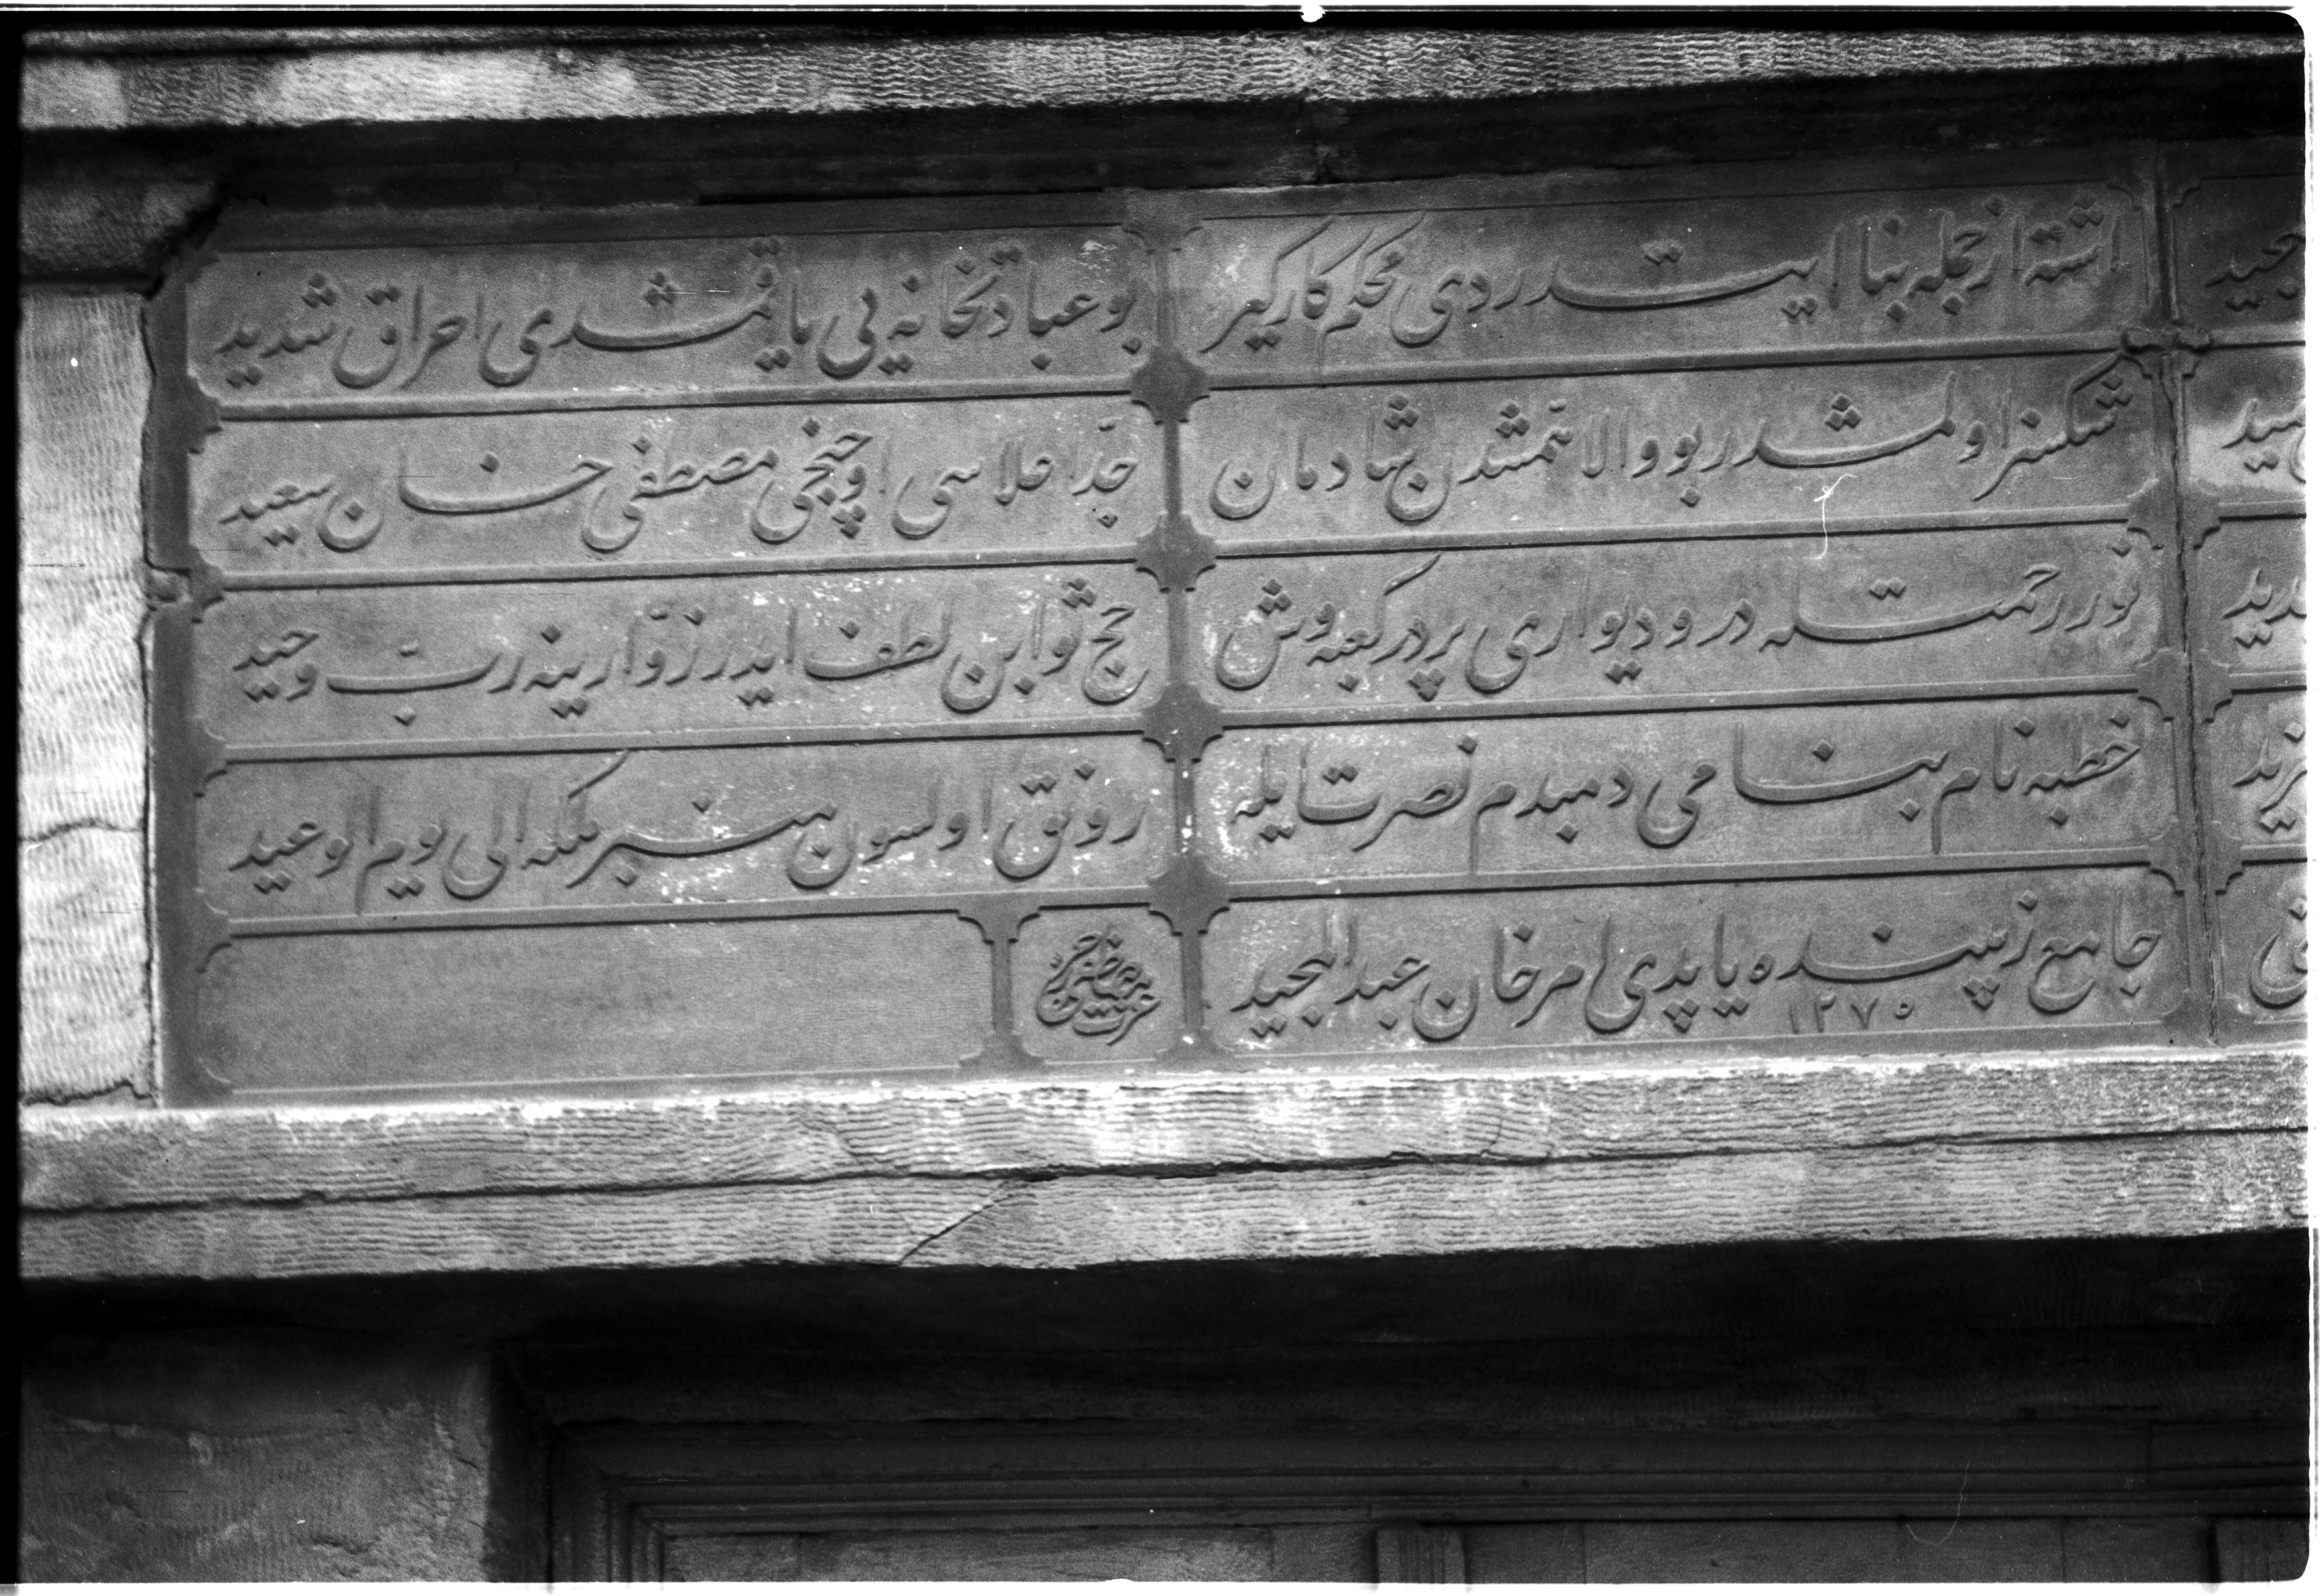 اشته از جمله بنا ایتدردی محکم کارکیر
بو عبادتخانه یی یاقمشدی احراق شدید
شکسز اولمشدر بو والا نمشدن شادمان
جد اعلاسی اوچنجی مصطفی خان سعید
نور رحمتله در و دیواری پردر کعبه وش
حج ثوابن لطف ایدر زوارینه رب وحید
خطبه نام بنامی دمبدم نصرت ایله
رونق اولسون منبر ملکه الی یوم الوعید
جامع زپسنده یاپدی امر خان عبدالمجید
١٢٧٥
عزت